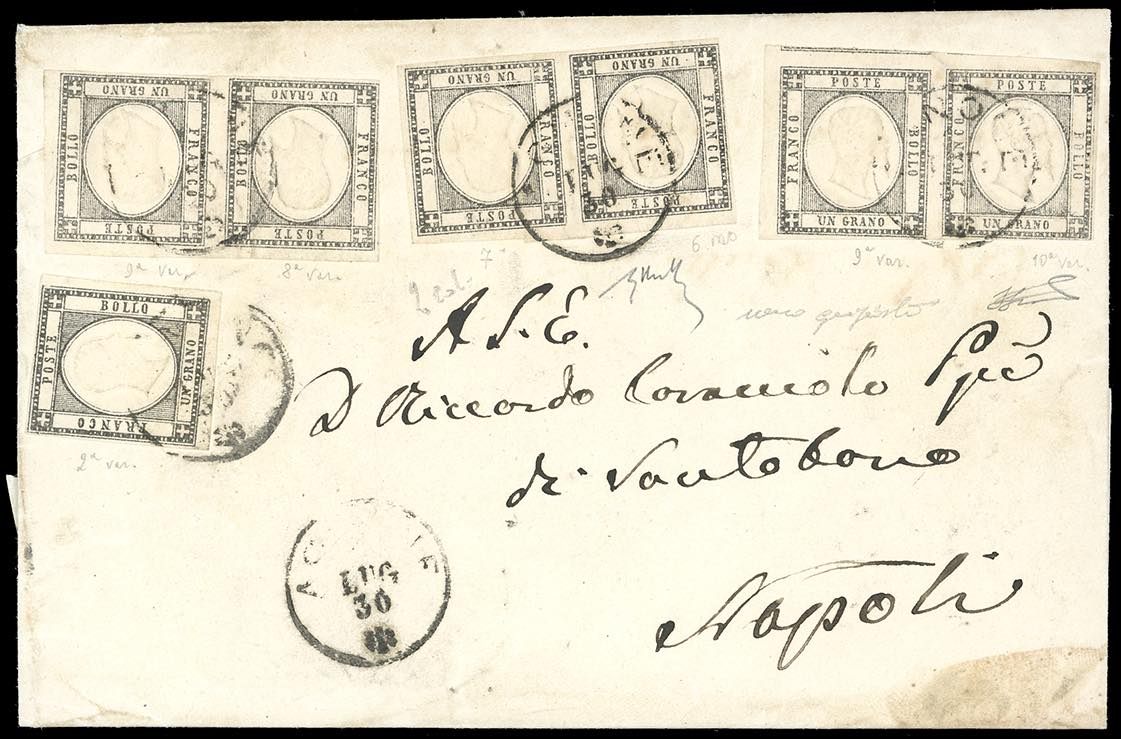 FRANCO BOLLO POSTE UN GRANO
FRANCO BOLLO POSTE UN GRANO
FRANCO BOLLO POSTE UN GRANO
FRANCO BOLLO POSTE UN GRANO
FRANCO BOLLO POSTE UN GRANO
FRANCO BOLLO POSTE UN GRANO
9a var. 8a var. 7 6 9a var. 10a var.
FRANCO BOLLO POSTE UN GRANO
2a var.
A S. E.
D Riccardo Caracciolo
di Santobono
Napoli
LUG
30